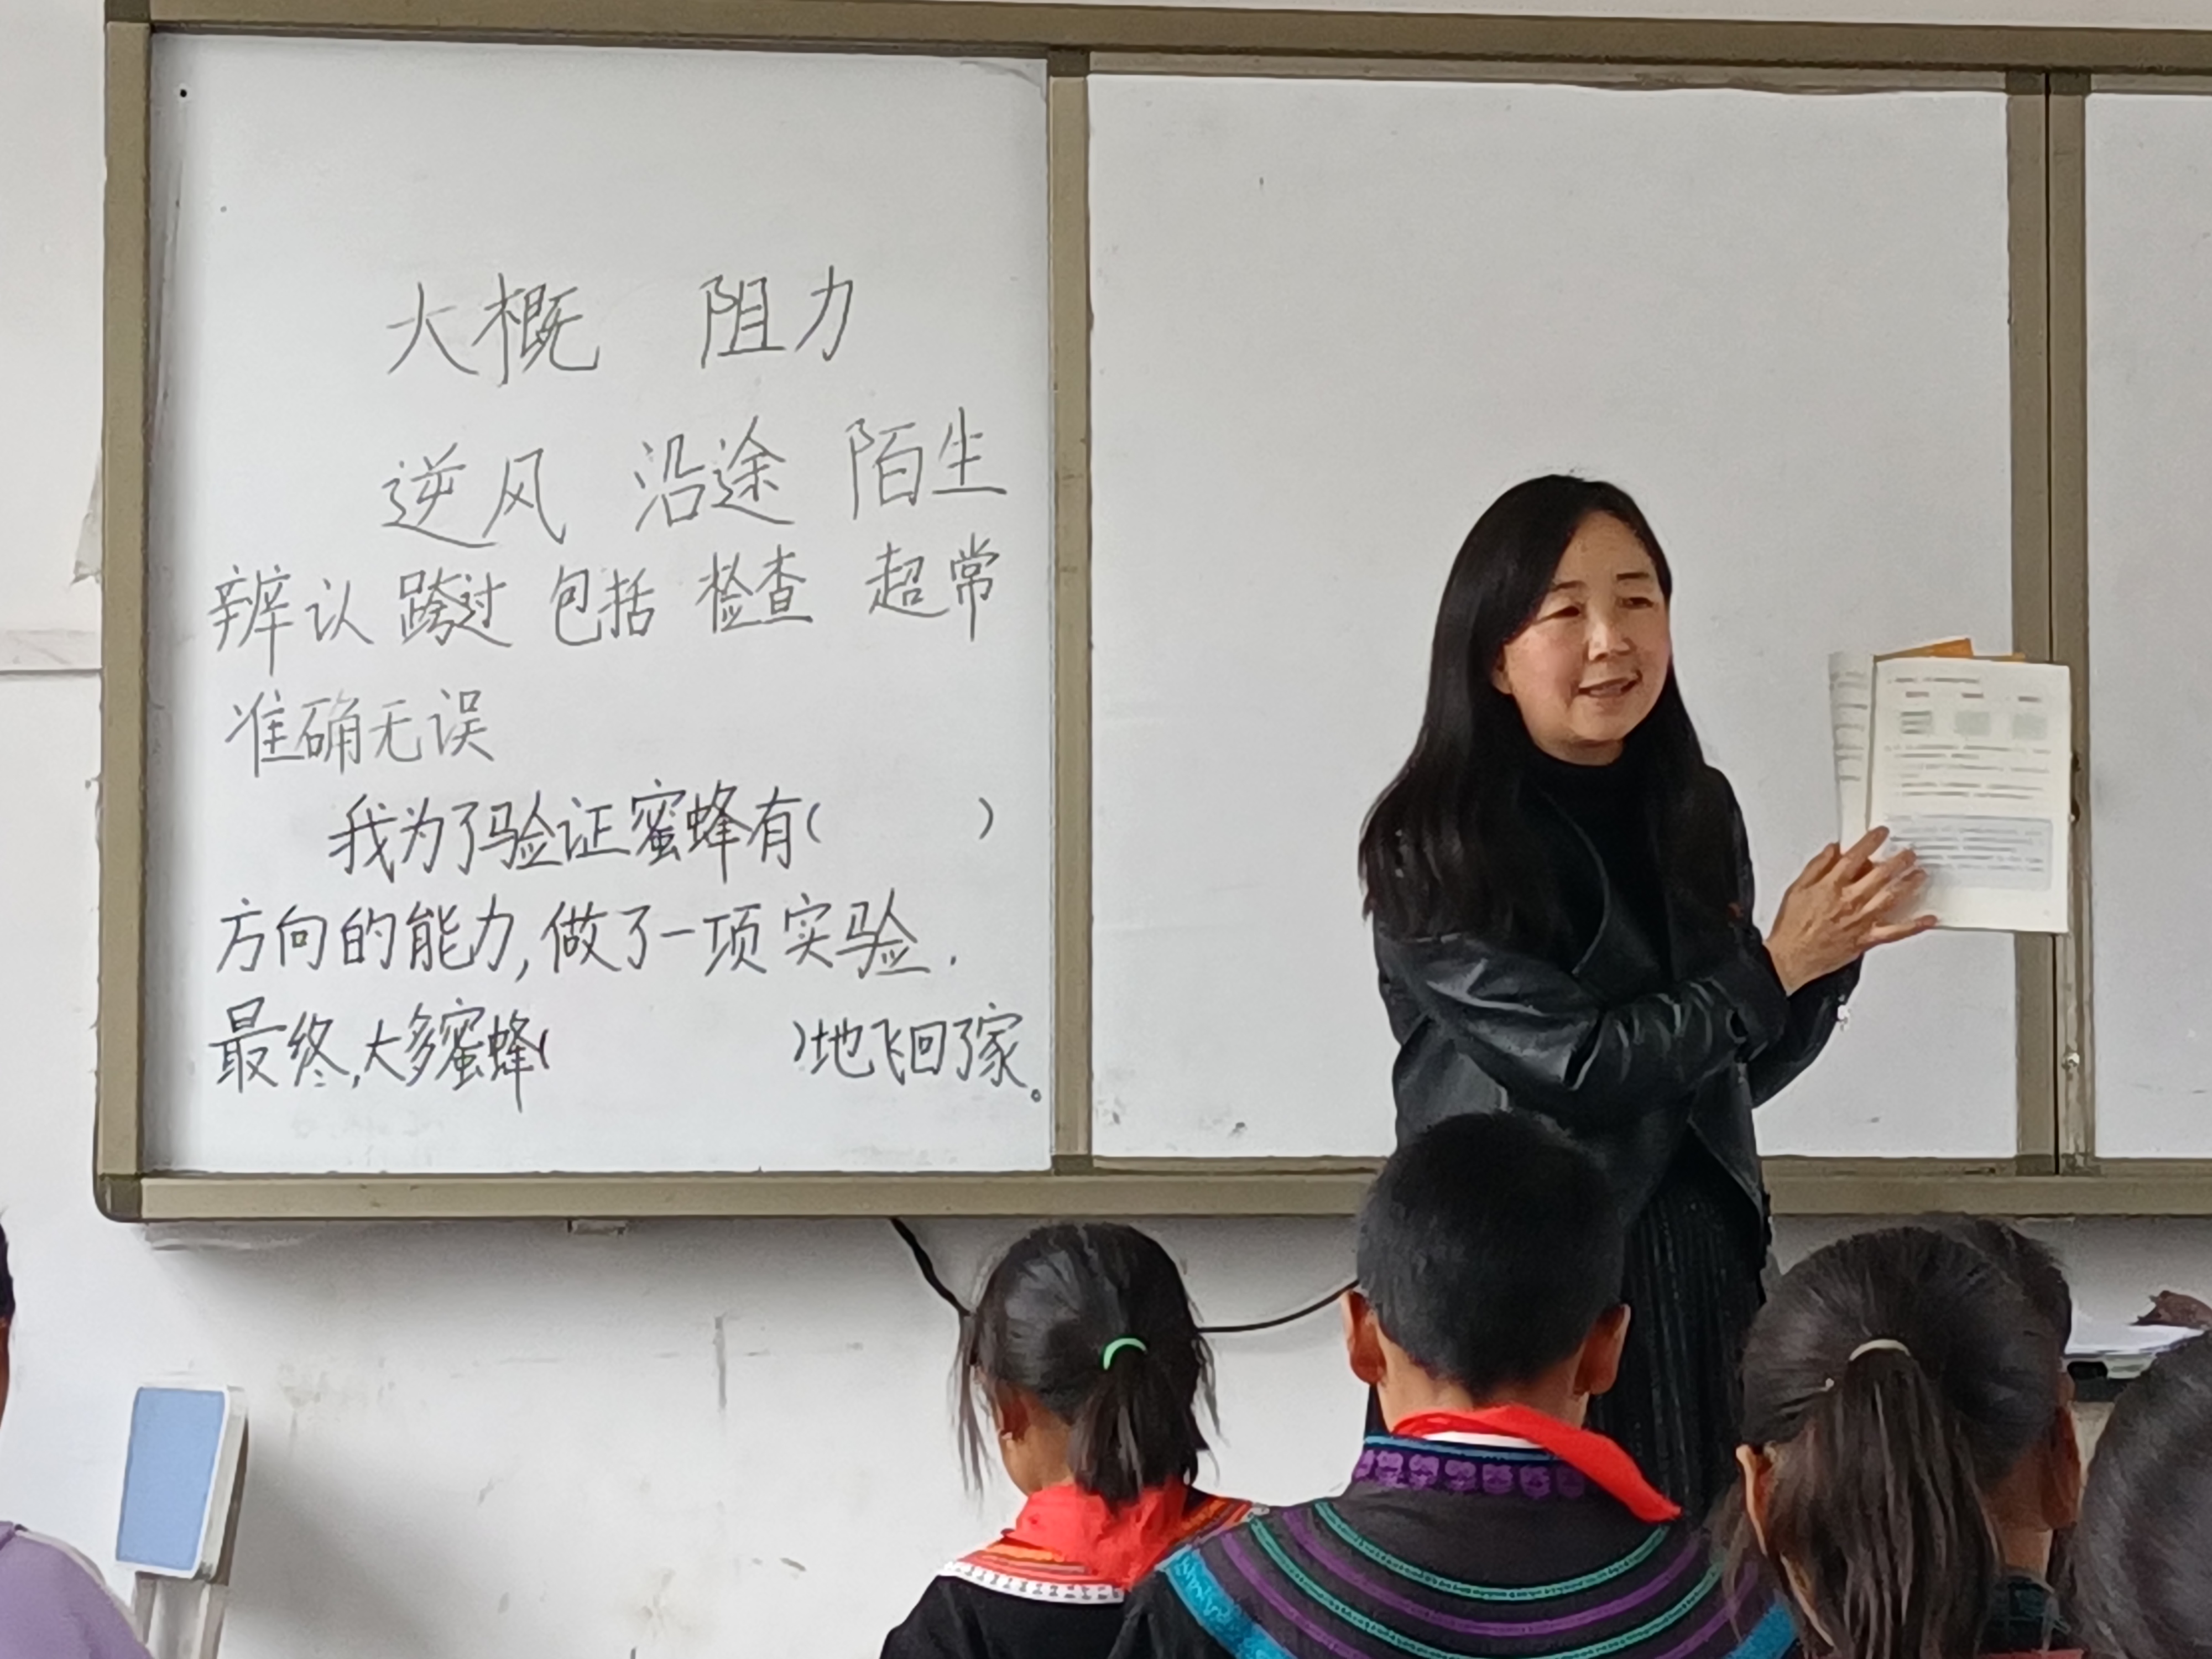 大概 阻力
逆风 沿途 陌生
辨认 跨过 包括 检查 超常
准确无误
我为了验证蜜蜂有( )
方向的能力,做了一项实验.
最终,大多蜜蜂( )地飞回了家。